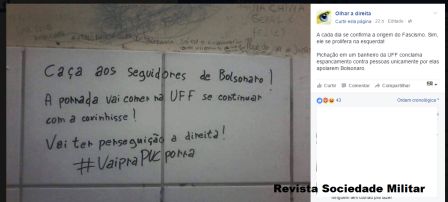 Caça aos seguidores de Bolsonaro!
A porrada vai comer na UFF se continuar
com a covinhisse!
Vai ter perseguição a direita!
#VaipraPUCporra
Olhar a direita
Curtir esta página · 22 h · Editado
A cada dia se confirma a origem do Fascismo. Sim,
ele se prolifera na esquerda!
Pichação em um banheiro da UFF conclama
espancamento contra pessoas unicamente por elas
apoiarem Bolsonaro
Curtir Comentar Compartilhar
43
Ordem cronológica
Revista Sociedade Militar